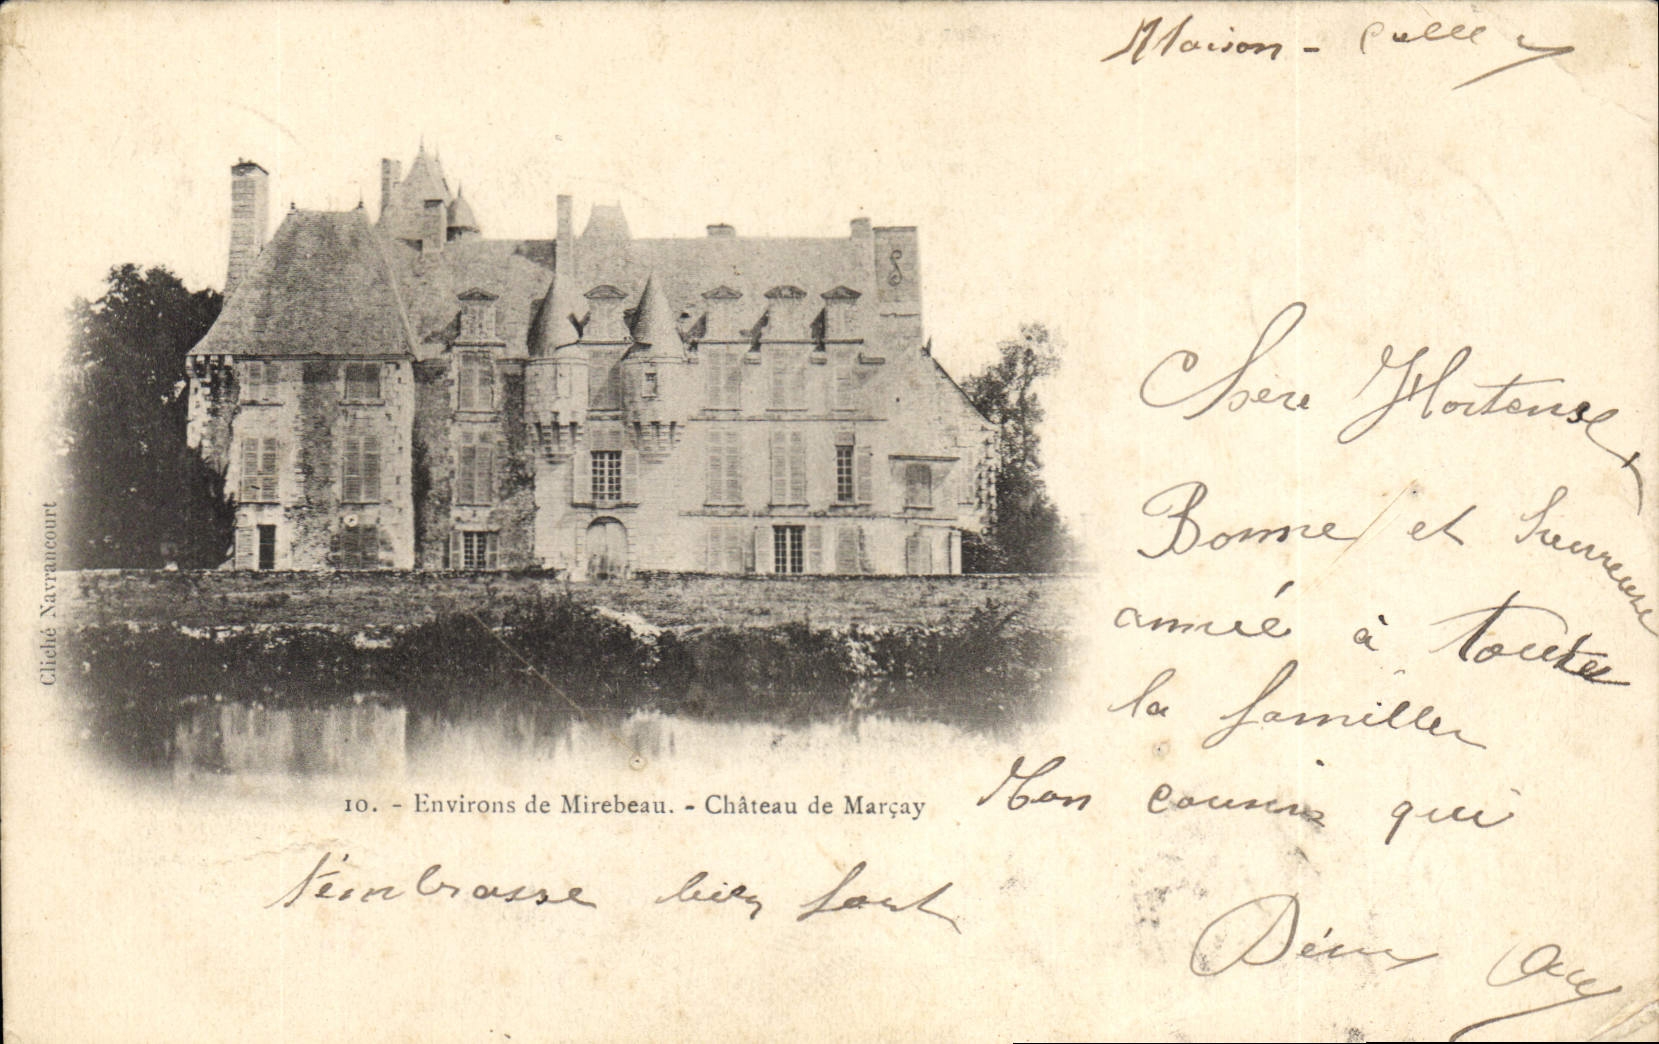 Maison -
Chère Hortense
Bonne et heureuse
année à toute
la famille
10. - Environs de Mirebeau. - Château de Marçay
Mon cousin qui
t'embrasse bien fort
Cliché Navrancourt